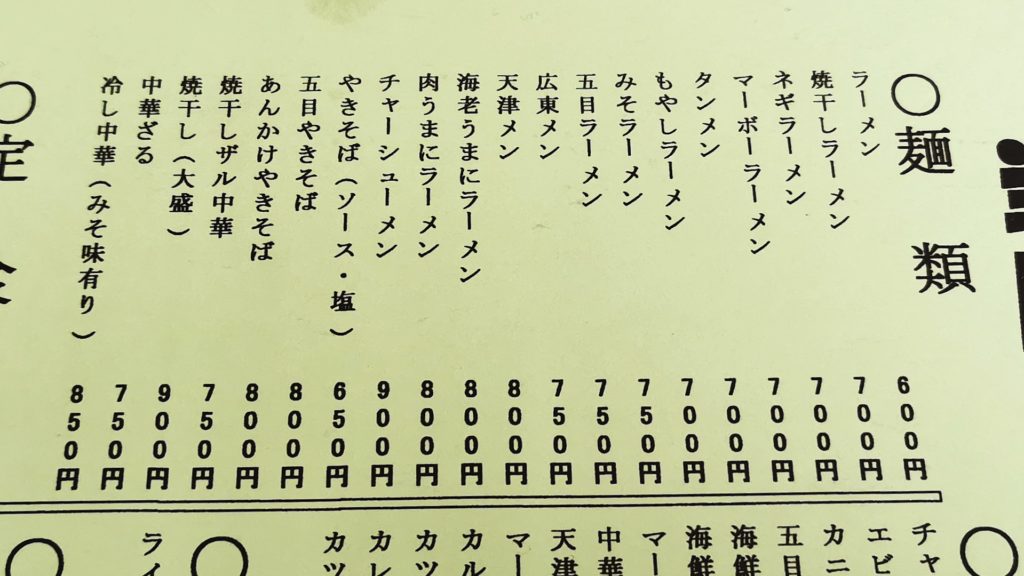 ○麺類
ラーメン 600円
焼干しラーメン 700円
ネギラーメン 700円
マーボーラーメン 700円
タンメン 700円
もやしラーメン 700円
みそラーメン 750円
五目ラーメン 750円
広東メン 750円
天津メン 800円
海老うまにラーメン 800円
肉うまにラーメン 800円
チャーシューメン 900円
やきそば（ソース・塩） 650円
五目やきそば 800円
あんかけやきそば 800円
焼干しザル中華 750円
焼干し（大盛） 900円
中華ざる 750円
冷し中華（みそ味有り） 850円
○定
チャ
エビ
カニ
五目
海鮮
海鮮
マー
中華
天津
マー
カル
カツ
カレ
カツ
ライ